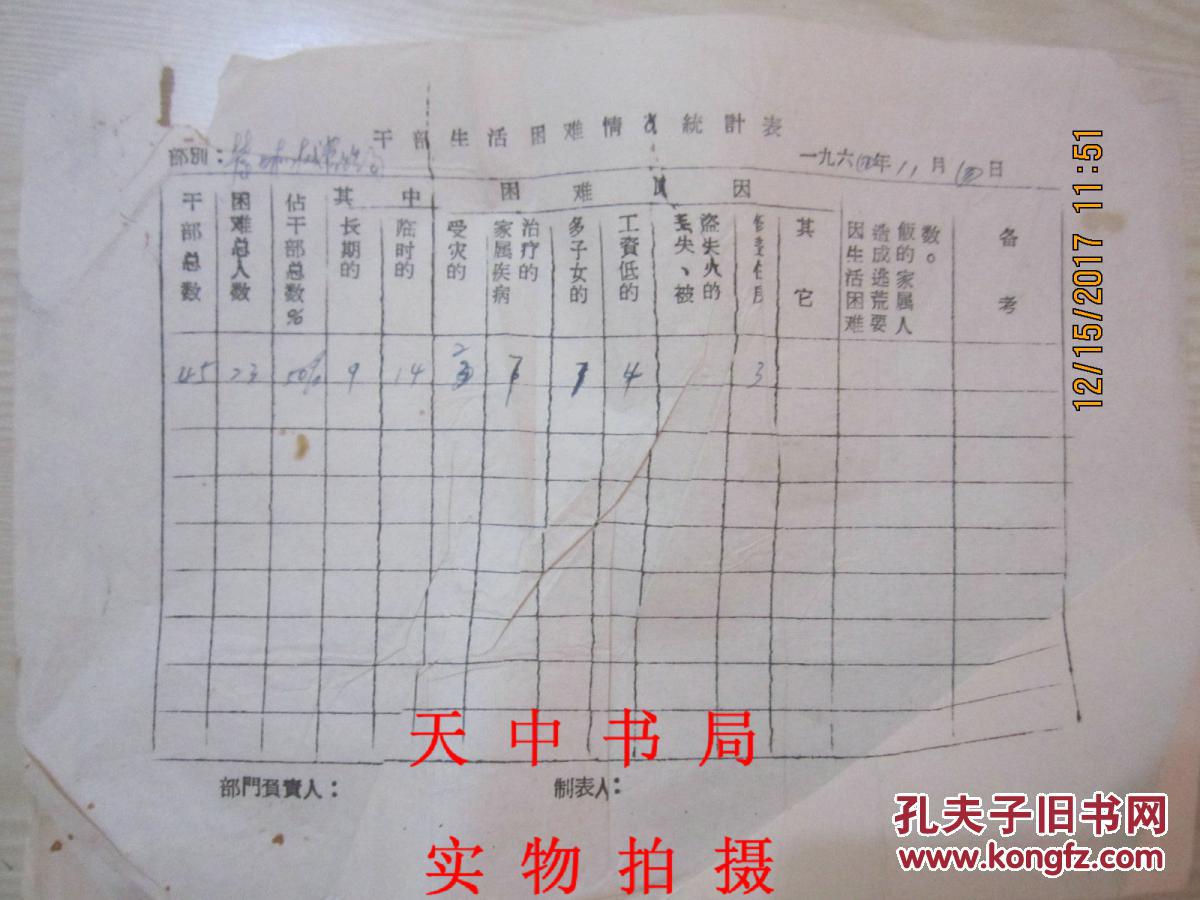 干部生活困难情况統計表
部别：
一九六 年11月 日
干部总数
困难总人数
佔干部总数%
其中
长期的
临时的
困难原因
受灾的
家属疾病治疗的
多子女的
工資低的
丢失、被盗失火的
其它
因生活困难造成逃荒要飯的家属人数。
备考
45 23 50% 9 14 2 7 7 4 3
部門負責人：
制表人：
12/15/2017 11:51
天中书局
实物拍摄
孔夫子旧书网
www.kongfz.com